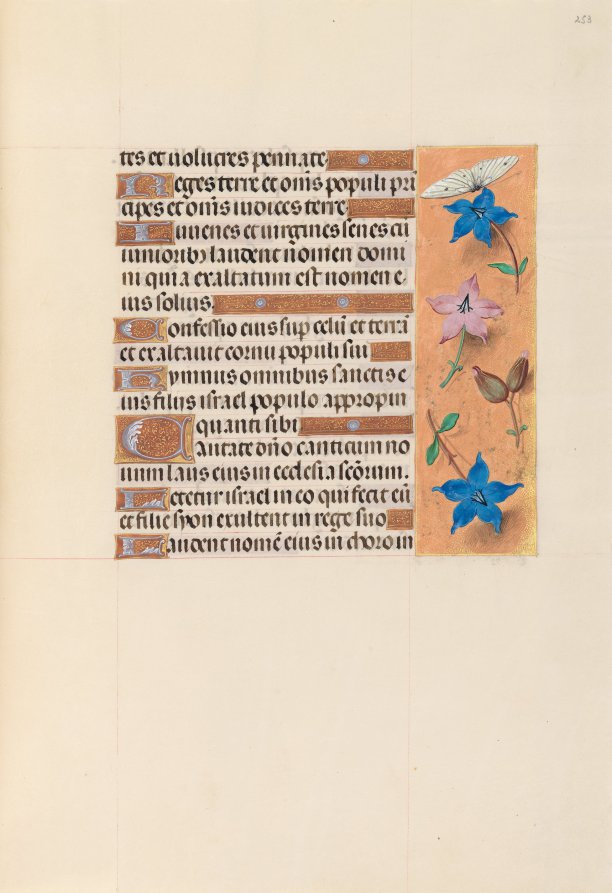 253
tes et uolucres pennate
Reges terre et om̄s populi pri
cipes et om̄s iudices terre
Iuuenes et uirgines senes cū
iunioribꝫ laudent nomen domi
ni quia exaltatum est nomen e
ius solius
Confessio eius sup celū et terrā
et exaltauit cornu populi sui
Hymnus omnibus sanctis e
ius filiis israel populo appropin
quanti sibi
Cantate dn̄o canticum no
uum laus eius in ecclesia scōrum.
Letetur isrāel in eo qui fecit eū
et filie syon exultent in rege suo
Laudent nomē eius in choro in